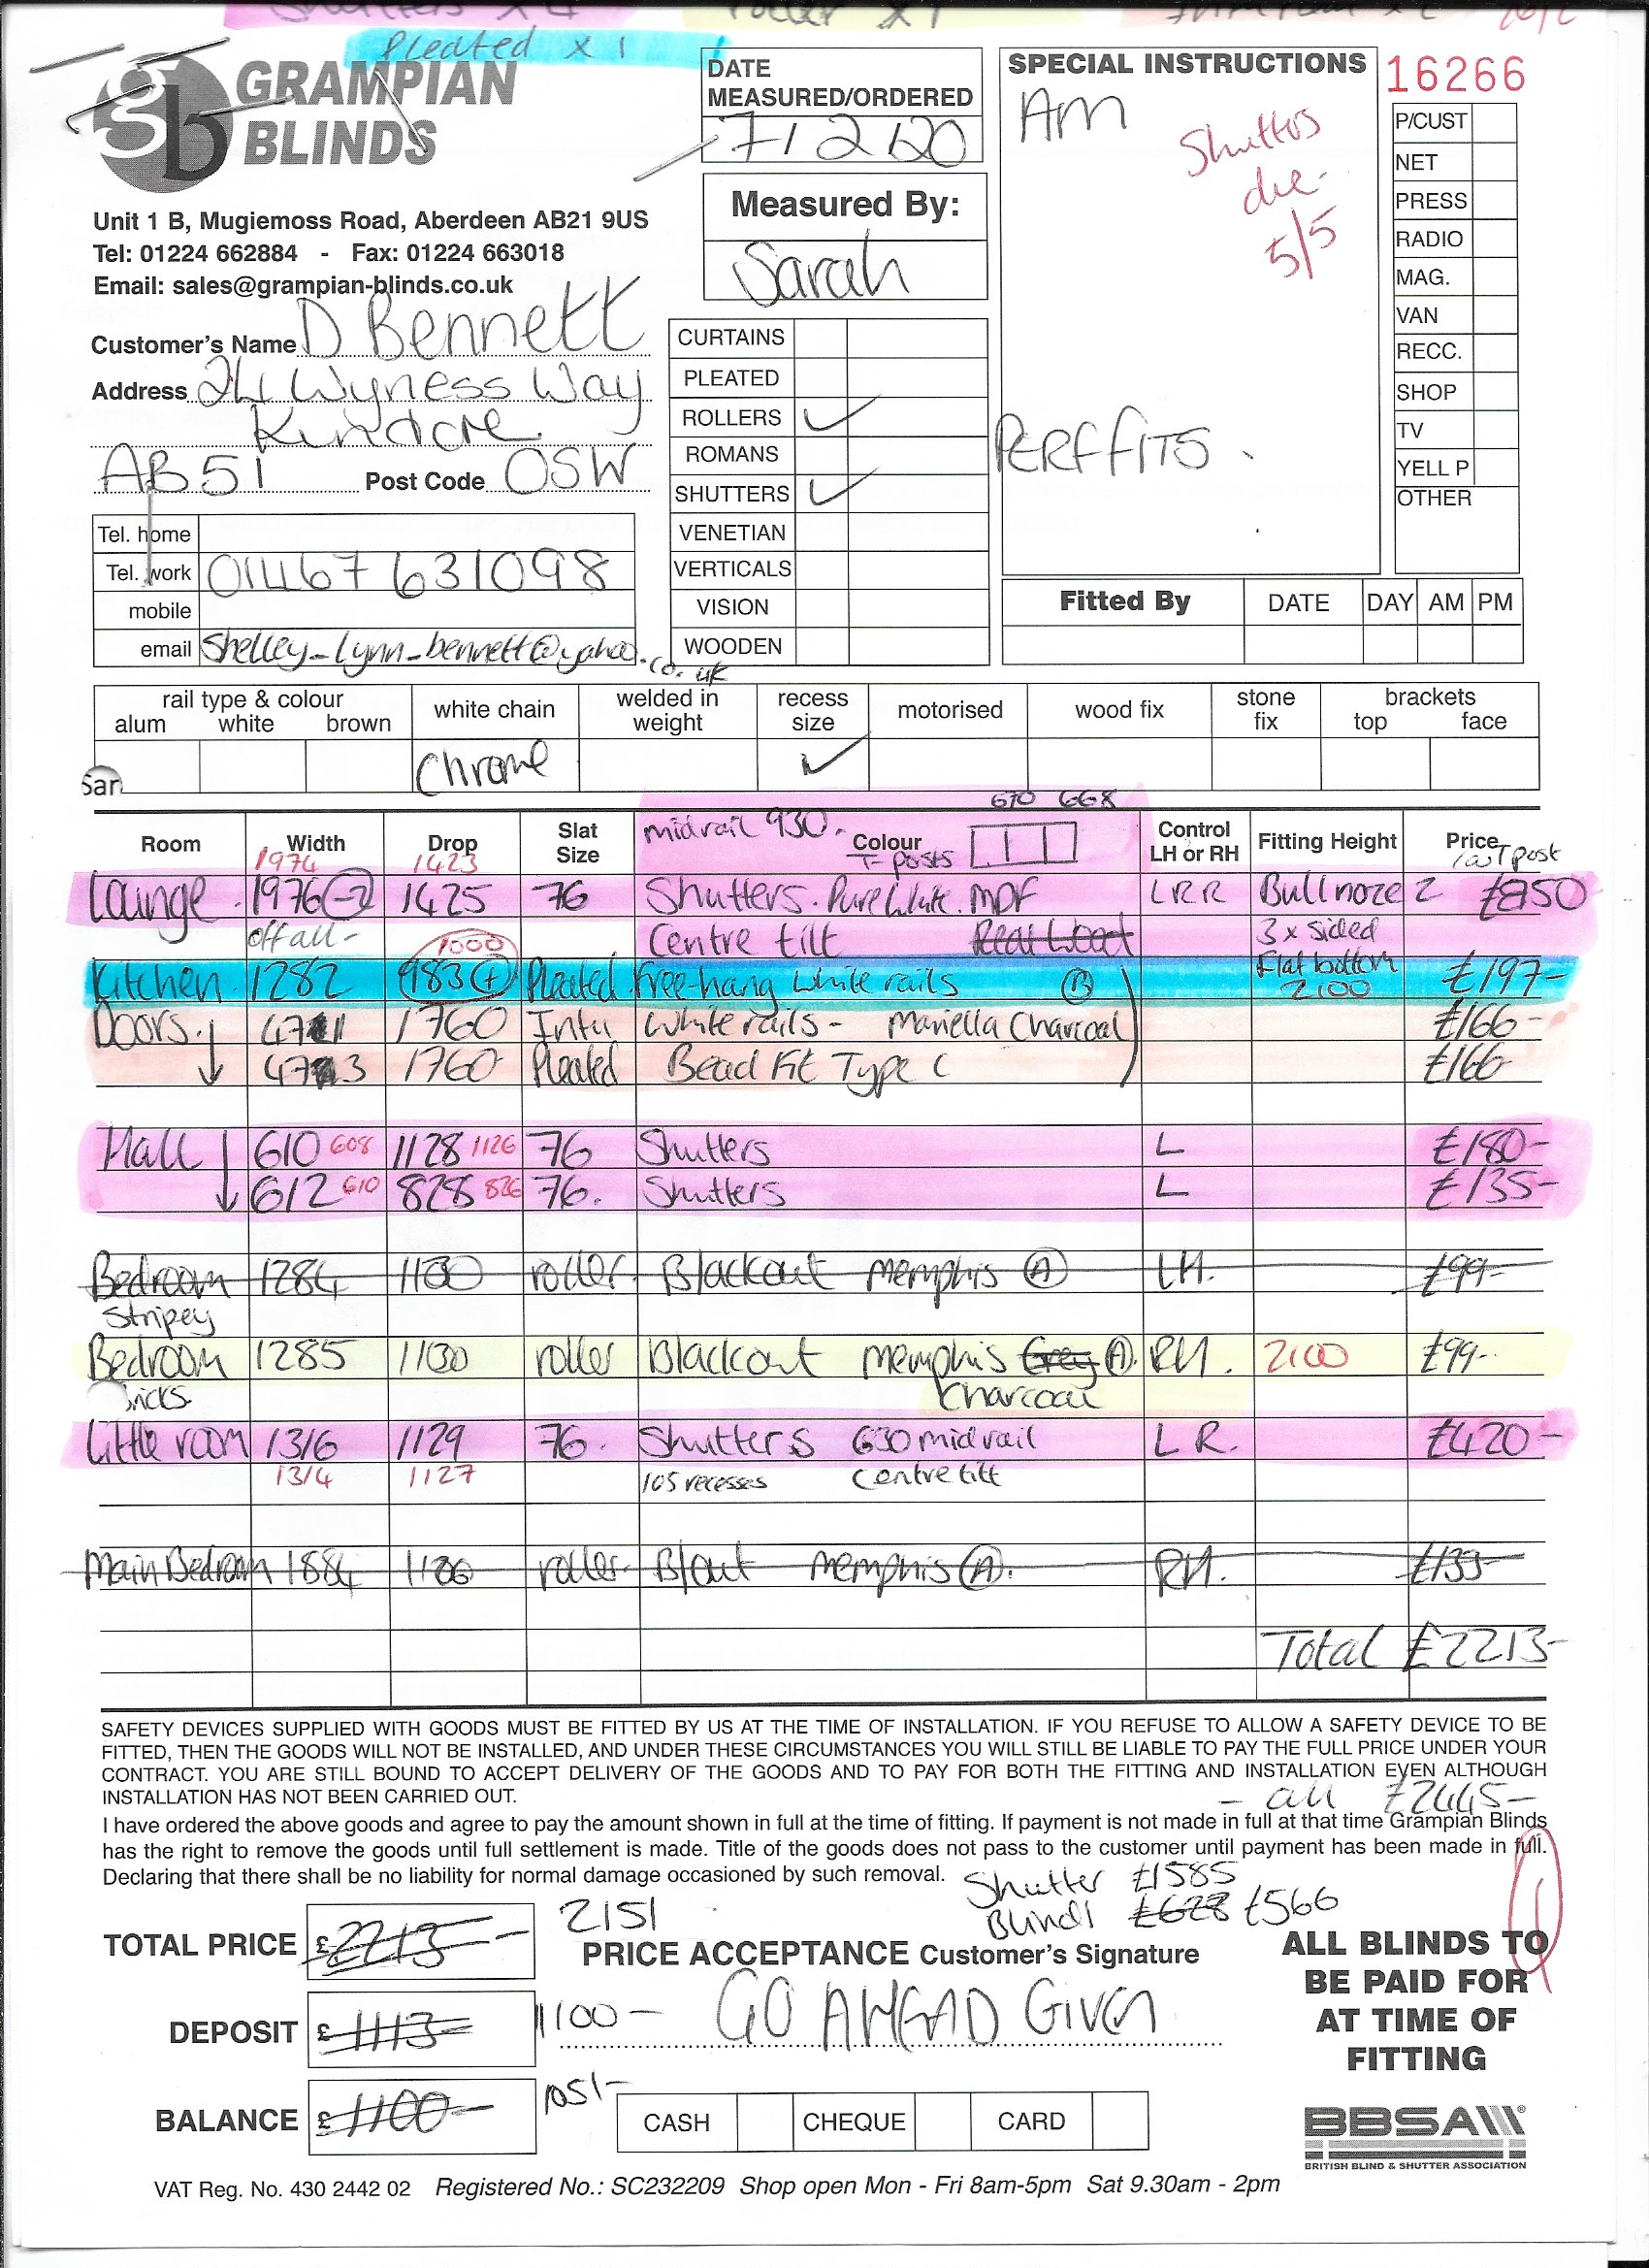 Shutters x 4 roller x 1 26/2
Pleated x 1
GRAMPIAN
BLINDS
Unit 1 B, Mugiemoss Road, Aberdeen AB21 9US
Tel: 01224 662884 - Fax: 01224 663018
Email: sales@grampian-blinds.co.uk
Customer's Name D Bennett
Address 24 Wyness Way
Kintore
AB51 Post Code 0SW
Tel. home
Tel. work 01467 631098
mobile
email Shelley_Lynn_bennett@yahoo.co.uk
DATE
MEASURED/ORDERED
7/2/20
Measured By:
Sarah
CURTAINS
PLEATED
ROLLERS ✓
ROMANS
SHUTTERS ✓
VENETIAN
VERTICALS
VISION
WOODEN
SPECIAL INSTRUCTIONS
AM
Shutters
due
5/5
PERFFITS
16266
P/CUST
NET
PRESS
RADIO
MAG.
VAN
RECC.
SHOP
TV
YELL P
OTHER
Fitted By DATE DAY AM PM
rail type & colour
alum white brown
white chain
welded in weight
recess size
motorised
wood fix
stone fix
brackets
top face
Chrome ✓
San
670 668
Room Width Drop Slat Size midrail 930. Colour Control LH or RH Fitting Height Price
1974 1423 T-posts T post
Lounge 1976 -2 1425 76 Shutters. Pure White. MDF LRR Bullnoze 2 £850
off all - Centre tilt Real Wood 3 x sided
1000 Flat bottom
Kitchen 1282 983 + Pleated free-hang white rails B 2100 £197-
Doors. 4711 1760 Intu White rails - Mariella Charcoal £166-
473 1760 Pleated Bead Fit Type C £166
Hall 610 608 1128 1126 76 Shutters L £180-
612 610 828 826 76. Shutters L £135-
Bedroom 1284 1130 roller Blackout memphis A LH. £99-
Stripey
Bedroom 1285 1130 roller Blackout memphis Grey A. RH. 2100 £99-
Charcoal
Little room 1316 1129 76. Shutters 630 midrail L R. £420-
1314 1127 105 recesses Centre tilt
Main Bedroom 1884 1130 roller B/out memphis A. RH. £133-
Total £2213-
SAFETY DEVICES SUPPLIED WITH GOODS MUST BE FITTED BY US AT THE TIME OF INSTALLATION. IF YOU REFUSE TO ALLOW A SAFETY DEVICE TO BE
FITTED, THEN THE GOODS WILL NOT BE INSTALLED, AND UNDER THESE CIRCUMSTANCES YOU WILL STILL BE LIABLE TO PAY THE FULL PRICE UNDER YOUR
CONTRACT. YOU ARE STILL BOUND TO ACCEPT DELIVERY OF THE GOODS AND TO PAY FOR BOTH THE FITTING AND INSTALLATION EVEN ALTHOUGH
INSTALLATION HAS NOT BEEN CARRIED OUT.
- all £2445-
I have ordered the above goods and agree to pay the amount shown in full at the time of fitting. If payment is not made in full at that time Grampian Blinds
has the right to remove the goods until full settlement is made. Title of the goods does not pass to the customer until payment has been made in full.
Declaring that there shall be no liability for normal damage occasioned by such removal.
Shutter £1585
Blinds £628 £566
TOTAL PRICE £2213- 2151
PRICE ACCEPTANCE Customer's Signature
DEPOSIT £1113- 1100- GO AHEAD GIVEN
BALANCE £1100- 1051-
CASH CHEQUE CARD
ALL BLINDS TO
BE PAID FOR
AT TIME OF
FITTING
BBSA
BRITISH BLIND & SHUTTER ASSOCIATION
VAT Reg. No. 430 2442 02 Registered No.: SC232209 Shop open Mon - Fri 8am-5pm Sat 9.30am - 2pm